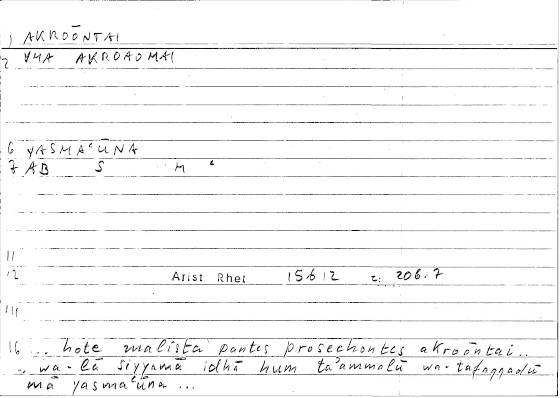 1 AKROŌNTAI
2 VMA AKROAOMAI
6 YASMAʿŪNA
7 AB S M ʿ
11
12 Arist Rhet 156 12 = 206.7
14
16 .. hote malista pantes prosechontes akroōntai..
.. wa-lā siyyamā idhā hum taʾammalū wa-tafaqqadū
mā yasmaʿūna ...